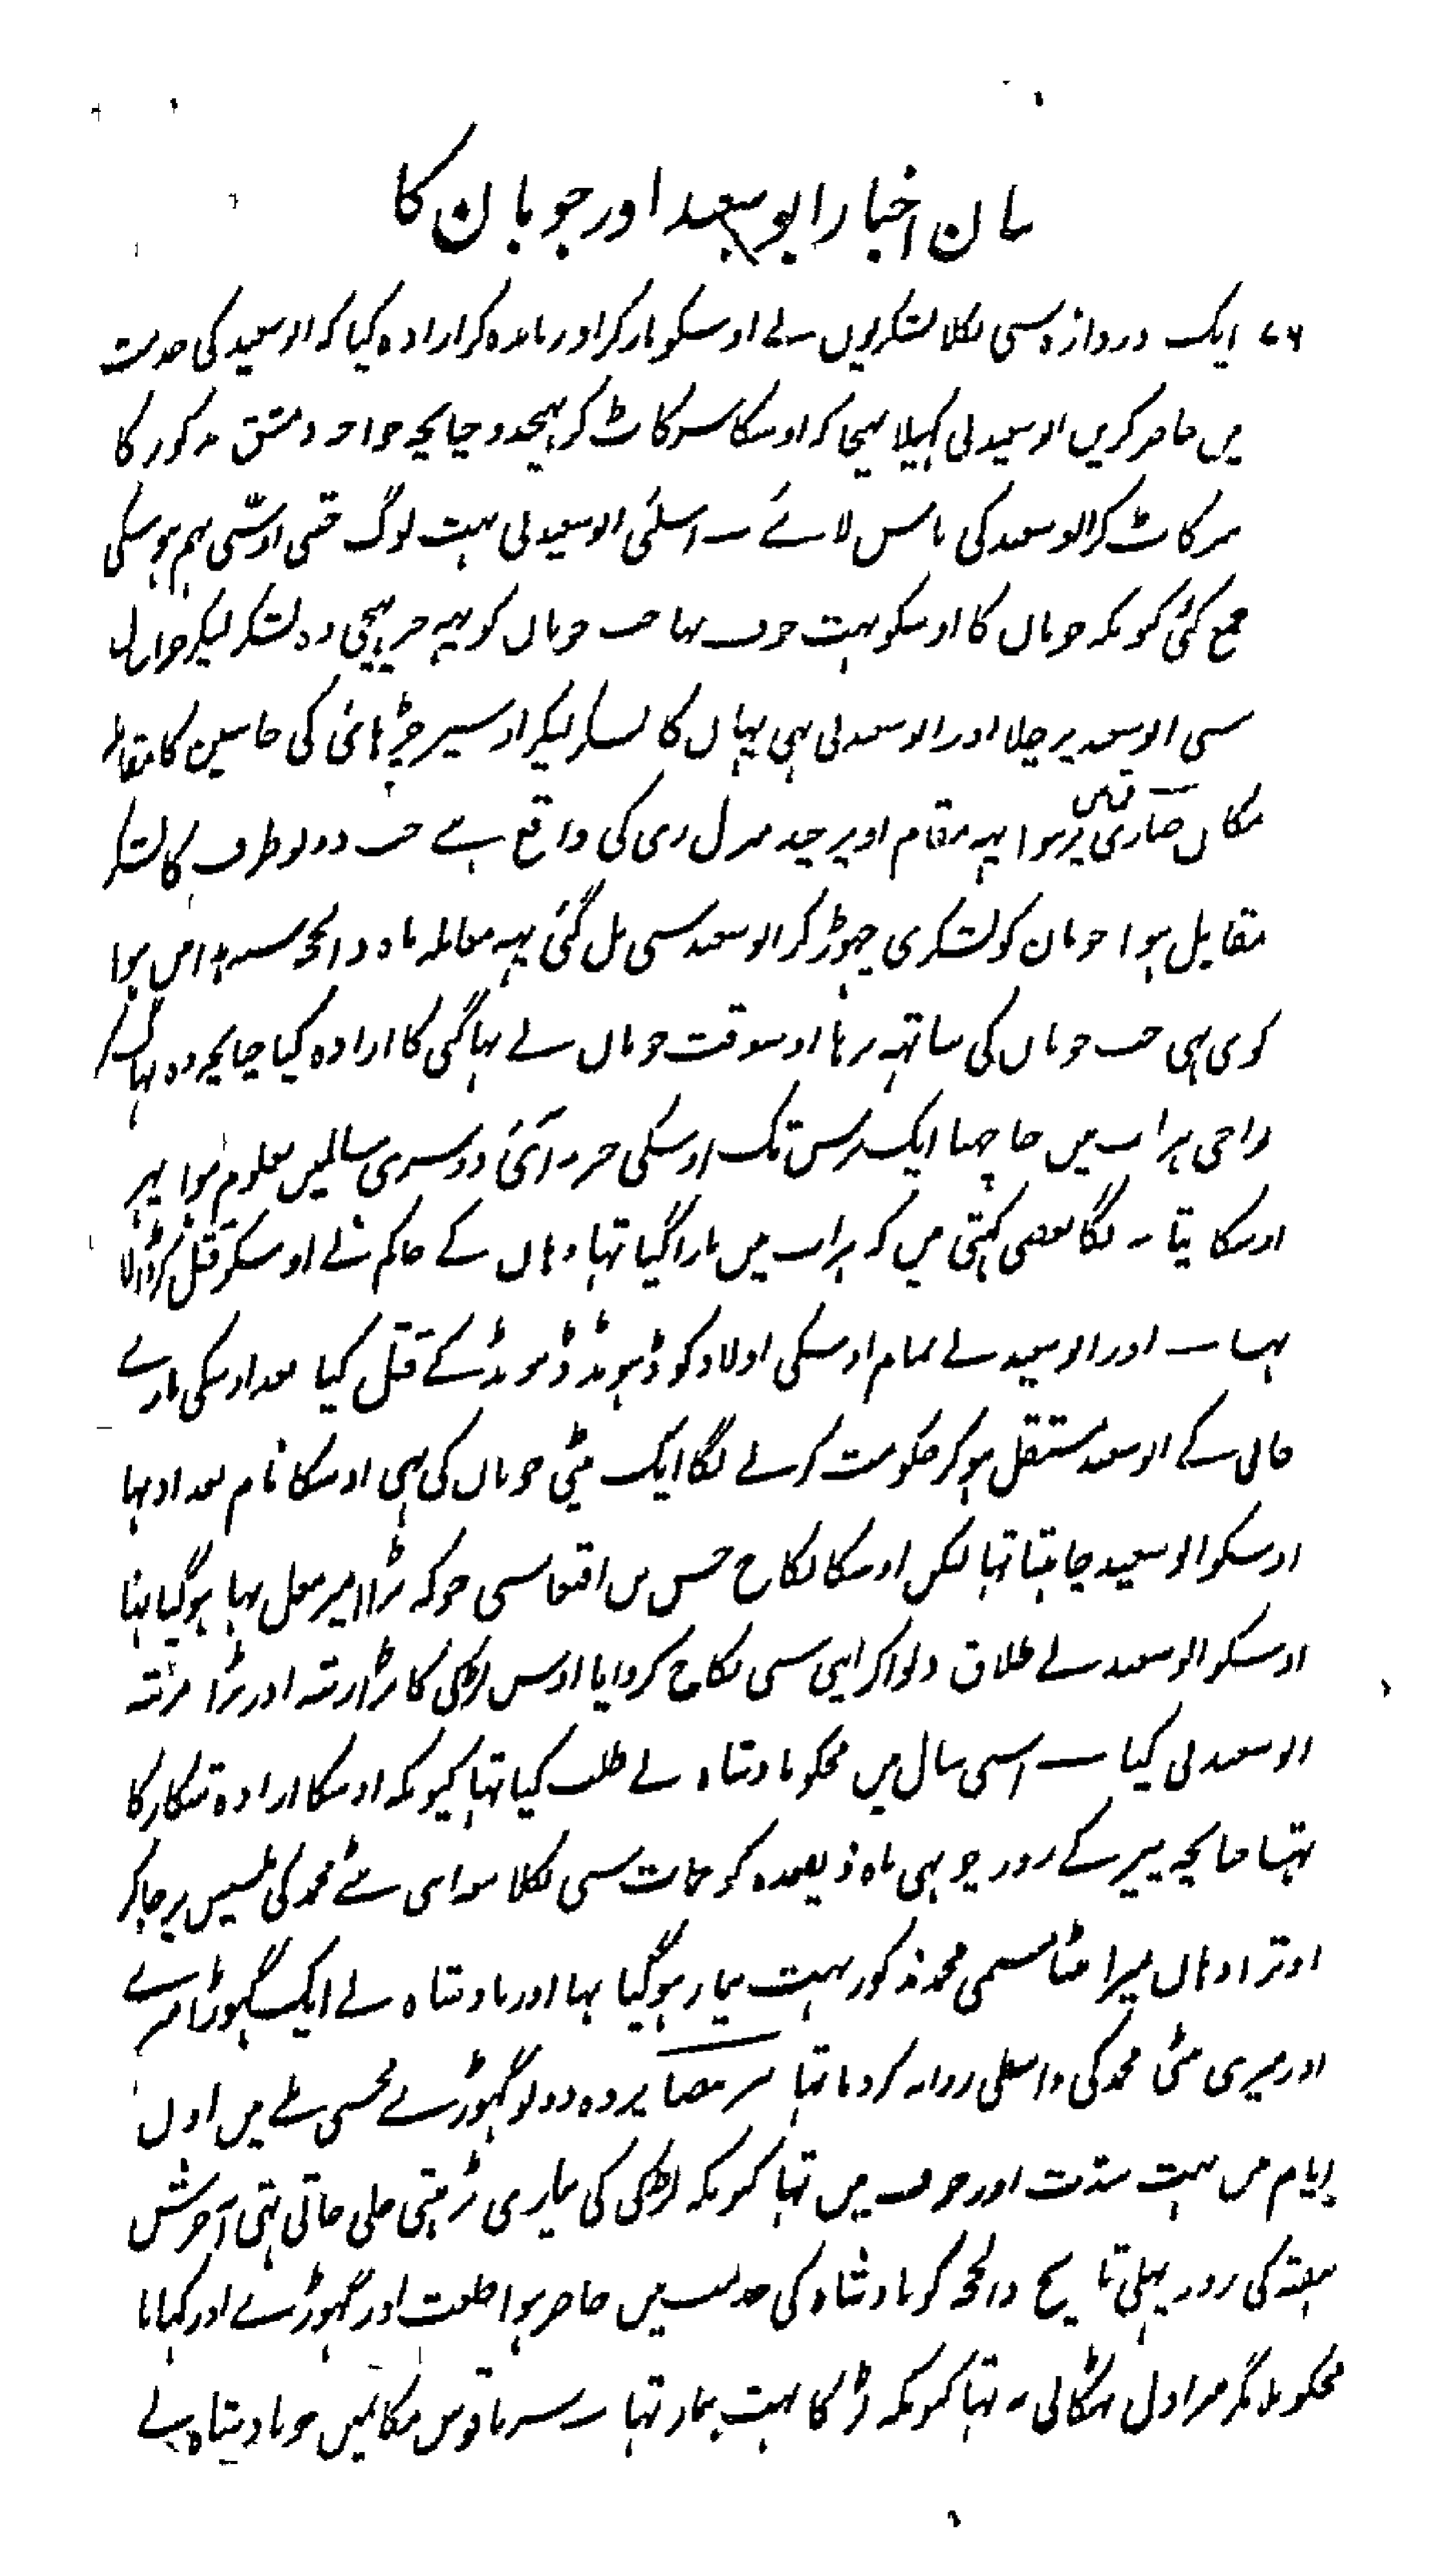 بیان اخبار ابو سعید اور جوبان کا
۷۶ ایک دروازہ سی نکلا لشکریوں نے اوسکو مارکر اور باندہ کر ارادہ کیا کہ ابو سعید کی خدمت
میں حاضر کریں ابو سعید نی کہلا بہیجا کہ اوسکا سر کاٹ کر بہیجدو چنانچہ خواجہ دمشق مذکور کا
سر کاٹ کر ابو سعید کی پاس لائے ۔ اسلئی ابو سعید نی بہت لوگ جتنی اوسّی بہم ہو سکی
جمع کئی کیونکہ جوبان کا اوسکو بہت خوف تہا جب جوبان کو یہہ خبر پہنچی وہ لشکر لیکر خراسان
سی ابو سعید پر چلا اور ابو سعید نی بہی یہاں کا لشکر لیکر اوسپر چڑہائی کی جانبین کا مقابلہ
مکان صاری قماس پر ہوا یہہ مقام اوپر چند منزل ری کی واقع ہے جب دونو طرف کا لشکر
مقابل ہوا جوبان کو لشکری چہوڑ کر ابو سعید سی مل گئی یہہ معاملہ ماہ ذالحجہ سنہ ہذا میں ہوا
کوئی بہی جب جوبان کی ساتہہ نرہا اوسوقت جوبان نے بہاگنی کا ارادہ کیا چنانچہ وہ بہاگ کر
نواحی ہرات میں جا چہپا ایک برس تک اوسکی خبر نہ آئی دوسری سالمیں معلوم ہوا پہر
اوسکا پتا نہ لگا بعضی کہتی ہیں کہ ہرات میں مارا گیا تہا وہاں کے حاکم نے اوسکو قتل کر ڈالا
تہا ۔ اور ابو سعید نے تمام اوسکی اولاد کو ڈہونڈ ڈہونڈ کے قتل کیا بعد اوسکی مارے
جانی کے ابو سعید مستقل ہو کر حکومت کرنے لگا ایک بیٹی جوبان کی تہی اوسکا نام بغداد تہا
اوسکو ابو سعید چاہتا تہا لیکن اوسکا نکاح حسن بن اقبغا سی جو کہ بڑا امیر مغل تہا ہو گیا تہا
اوسکو ابو سعید نے طلاق دلوا کر اپنی سی نکاح کروایا اوس لڑکی کا بڑا رتبہ اور بڑا مرتبہ
ابو سعید نی کیا ۔ اسی سال میں مجکو بادشاہ نے طلب کیا تہا کیونکہ اوسکا ارادہ شکار کا
تہا چنانچہ پیر کے روز چوتہی ماہ ذیقعدہ کو حمات سی نکلا معہ اپنی بیٹے محمد کی بلبیس پر جا کر
اوترا وہاں میرا بیٹا مسمی محمد مذکور بہت بیمار ہو گیا تہا اور بادشاہ نے ایک گہوڑا میرے
اور میری بیٹی محمد کی واسطی روانہ کر دیا تہا پر وہ دونو گہوڑے مجہسی ملے میں اول
ایام میں بہت شدت اور خوف میں تہا کیونکہ لڑکی کی بیماری بڑہتی چلی جاتی تہی آخرش
ہفتہ کی روز پہلی تاریخ ذالحجہ کو بادشاہ کی خدمت میں حاضر ہوا خلعت اور گہوڑے اور کہانا
مجکو ملا مگر میرا دل ٹہکانی نہ تہا کیونکہ لڑکا بہت بیمار تہا ۔ سریاقوس مکانمیں جو بادشاہ نے